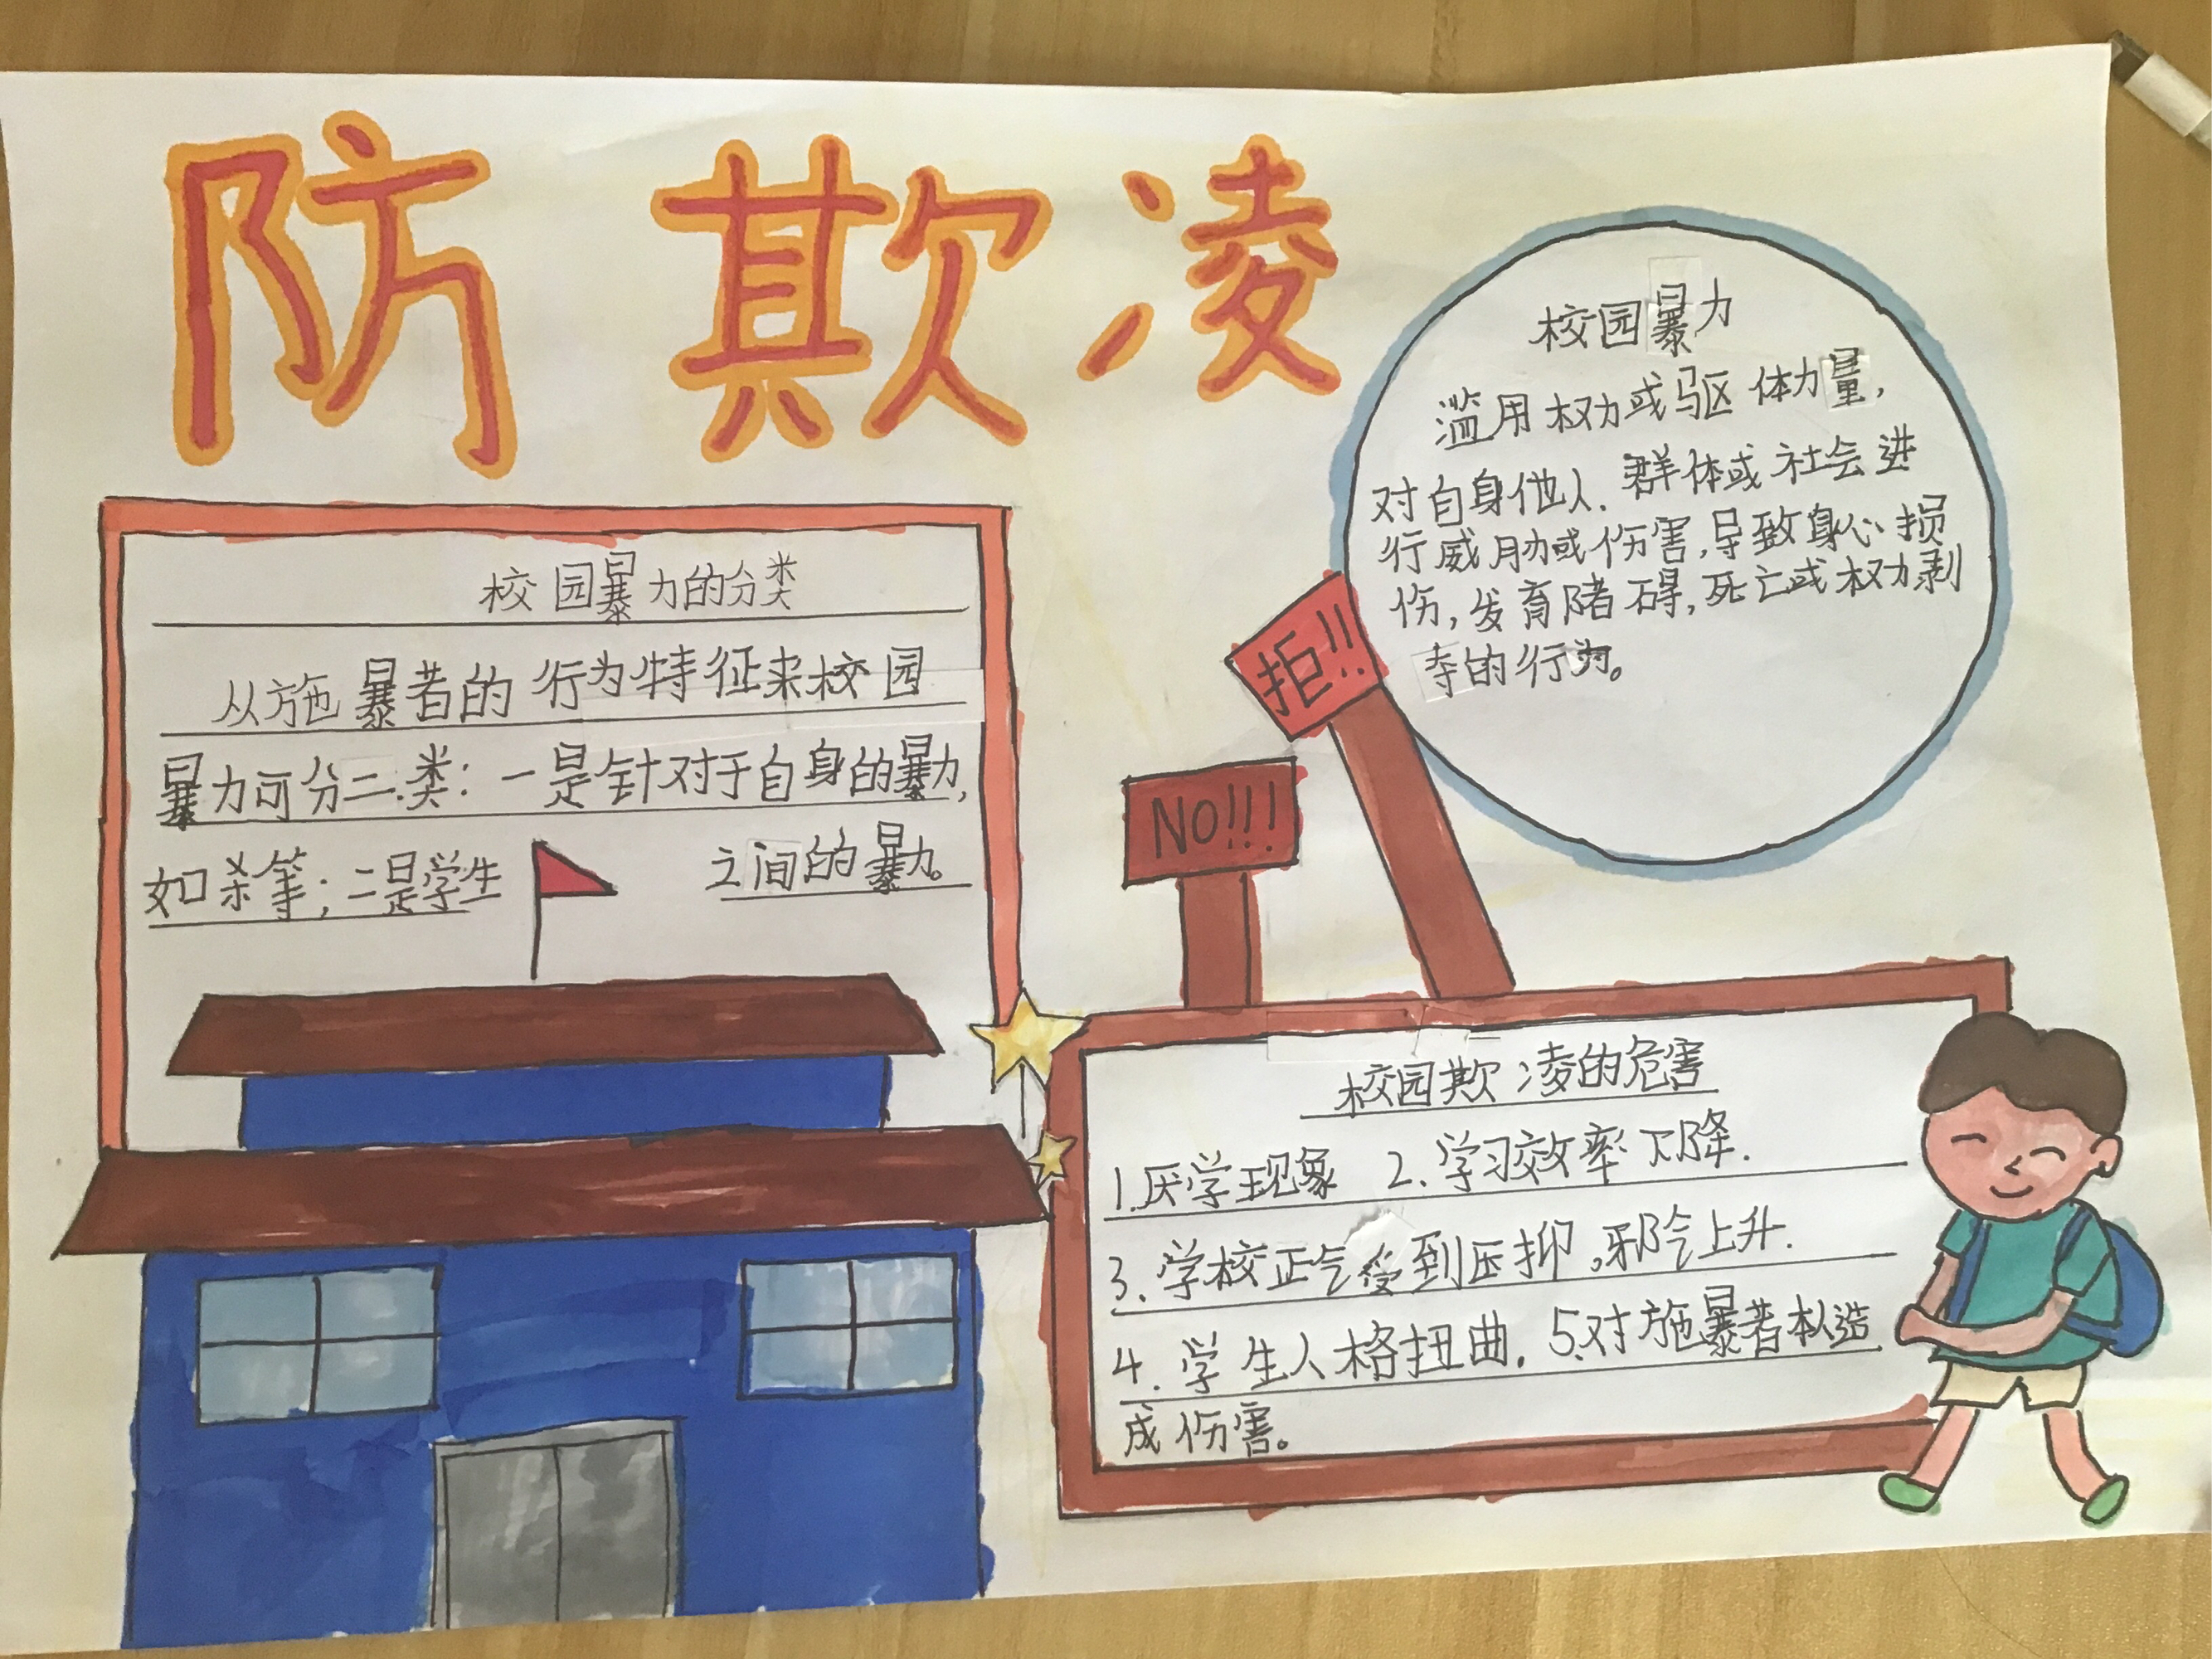 防欺凌
校园暴力的分类
从施暴者的行为特征来校园
暴力可分二.类：一是针对于自身的暴力,
如杀等；二是学生之间的暴力。
校园暴力
滥用权力或驱体力量,
对自身他人.群体或社会进
行威胁或伤害,导致身心损
伤,发育障碍,死亡或权力剥
夺的行为。
拒!!
NO!!!
校园欺凌的危害
1.厌学现象 2.学习效率下降.
3.学校正气受到压抑,邪气上升.
4.学生人格扭曲.5.对施暴者本人造
成伤害。